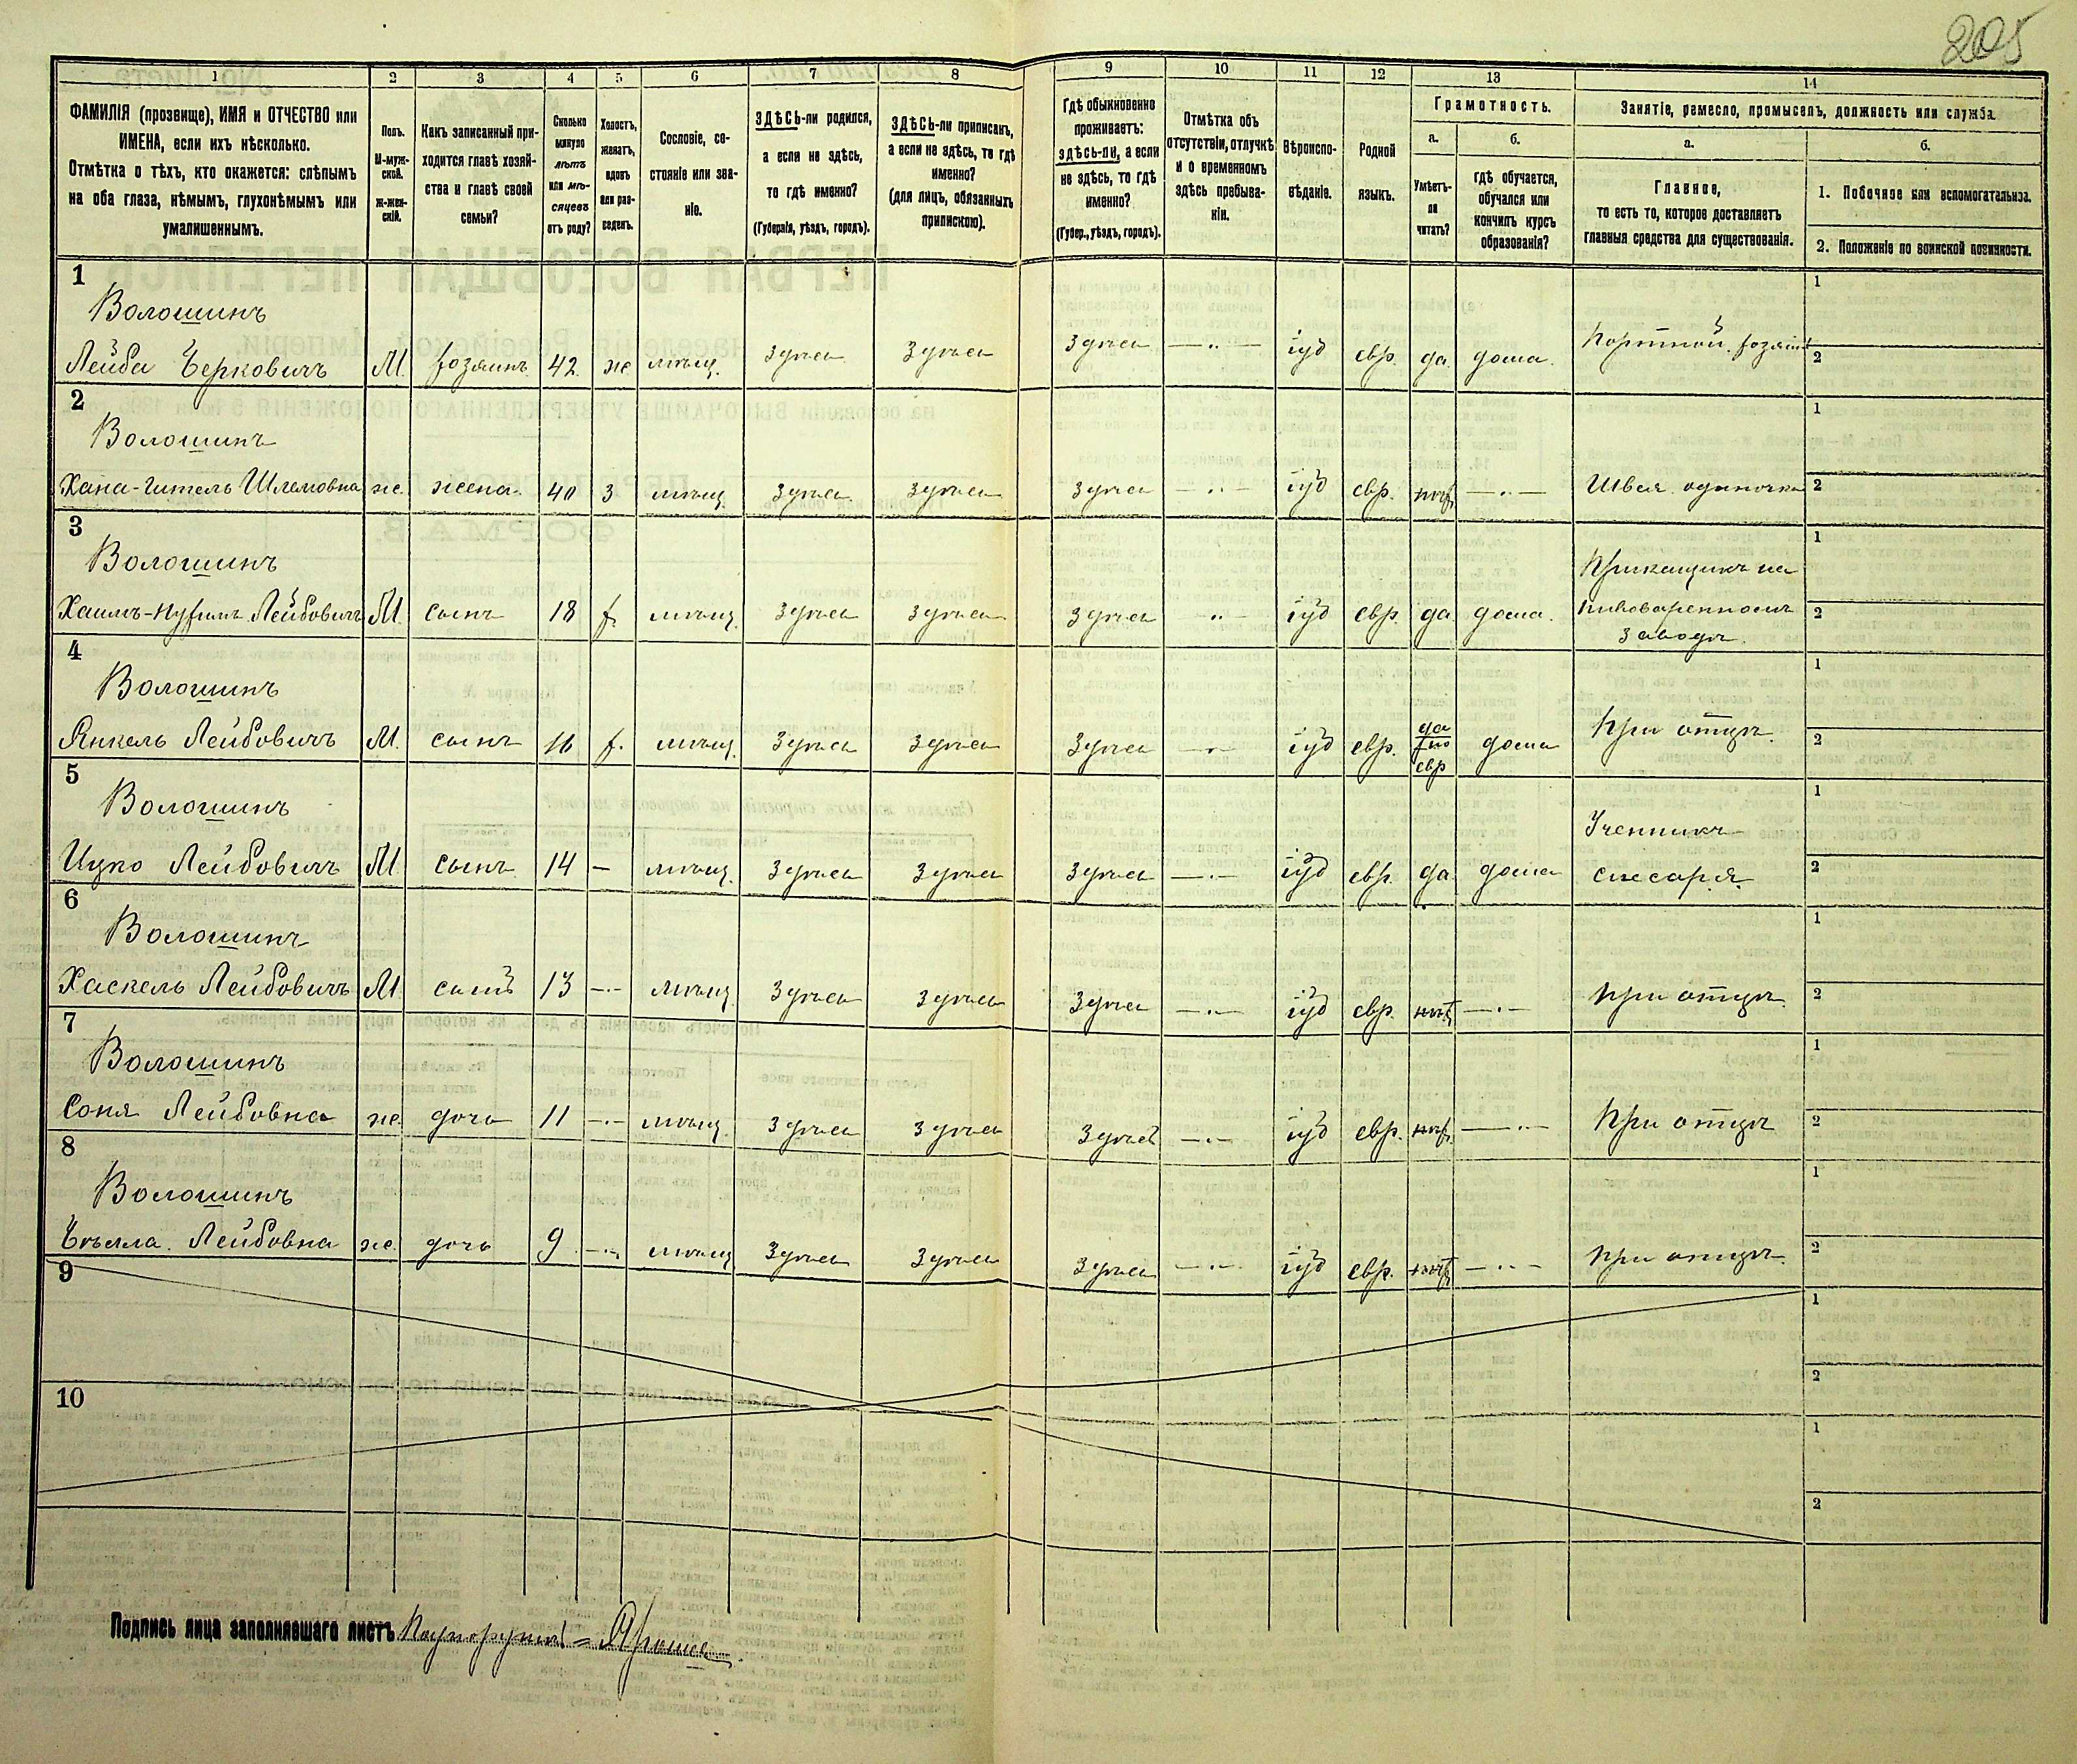 205
1 2 3 4 5 6 7 8 9 10 11 12 13 14
ФАМИЛІЯ (прозвище), ИМЯ и ОТЧЕСТВО или
ИМЕНА, если ихъ нѣсколько.
Отмѣтка о тѣхъ, кто окажется: слѣпымъ
на оба глаза, нѣмымъ, глухонѣмымъ или
умалишеннымъ.
Полъ.
М-муж-
ской.
ж-жен-
скій.
Какъ записанный при-
ходится главѣ хозяй-
ства и главѣ своей
семьи?
Сколько
минуло
лѣтъ
или мѣ-
сяцевъ
отъ роду?
Холостъ,
женатъ,
вдовъ
или раз-
веденъ.
Сословіе, со-
стояніе или зва-
ніе.
ЗДѢСЬ-ли родился,
а если не здѣсь,
то гдѣ именно?
(Губернія, уѣздъ, городъ).
ЗДѢСЬ-ли приписанъ,
а если не здѣсь, то гдѣ
именно?
(для лицъ, обязанныхъ
припискою).
Гдѣ обыкновенно
проживаетъ:
здѣсь-ли, а если
не здѣсь, то гдѣ
именно?
(Губер., уѣздъ, городъ).
Отмѣтка объ
отсутствіи, отлучкѣ
и о временномъ
здѣсь пребыва-
ніи.
Вѣроиспо-
вѣданіе.
Родной
языкъ.
Грамотность.
а.
Умѣетъ-
ли
читать?
б.
гдѣ обучается,
обучался или
кончилъ курсъ
образованія?
Занятіе, ремесло, промыселъ, должность или служба.
а.
Главное,
то есть то, которое доставляетъ
главныя средства для существованія.
б.
1. Побочное или вспомогательное.
2. Положеніе по воинской повинности.
1
Волошинъ
Лейба Берковичъ М. хозяинъ 42. же мѣщ. здѣсь здѣсь здѣсь іуд евр. да дома. Портной. хозяинъ
1
2
2
Волошинъ
Хана-Гитель Шлемовна же. жена. 40 з мѣщ. здѣсь здѣсь здѣсь іуд евр. нѣтъ Швея одиночка
1
2
3
Волошинъ
Лейбовичъ М. сынъ 18 х. мѣщ. здѣсь здѣсь здѣсь іуд евр. да дома. Прикащикъ на
пивоваренномъ
заводѣ.
1
2
4
Волошинъ
Янкель Лейбовичъ М. сынъ 16 х. мѣщ. здѣсь здѣсь здѣсь іуд евр. да по евр дома При отцѣ.
1
2
5
Волошинъ
Ицко Лейбовичъ М. сынъ 14 — мѣщ. здѣсь здѣсь здѣсь іуд евр. да дома Ученикъ
слесаря.
1
2
6
Волошинъ
Хаскель Лейбовичъ М. сынъ 13 мѣщ. здѣсь здѣсь здѣсь іуд евр. нѣтъ при отцѣ.
1
2
7
Волошинъ
Соня Лейбовна же. дочь 11 мѣщ. здѣсь здѣсь здѣсь іуд евр. нѣтъ При отцѣ
1
2
8
Волошинъ
Бейла Лейбовна же. дочь 9 мѣщ. здѣсь здѣсь здѣсь іуд евр. нѣтъ При отцѣ.
1
2
9
1
2
10
1
2
Подпись лица заполнявшаго листъ